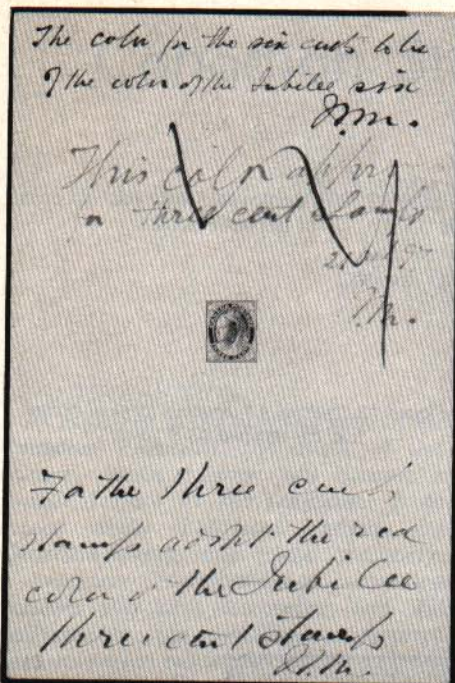 The color for the six cents to be
of the color of the Jubilee six
W.M.
This color
three cent stamps
For the three cents
stamps adopt the red
color of the Jubilee
three cent stamps
W.M.